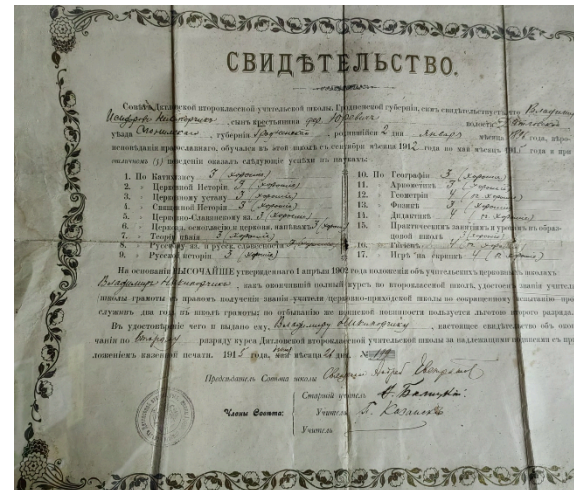 СВИДѢТЕЛЬСТВО.
Совѣтъ Дятловской второклассной учительской школы, Гродненской губерніи, симъ свидѣтельствуетъ, что Владиміръ
сынъ крестьянина дер. волости Дятловской
уѣзда Слонимскаго, губерніи Гродненской, родившійся 2 дня января мѣсяца 1896 года, вѣро-
исповѣданія православнаго, обучался въ этой школѣ съ сентября мѣсяца 1912 года по май мѣсяцъ 1915 года и при
поведеніи оказалъ слѣдующіе успѣхи въ наукахъ:
1. По Катихизису 3 (хорошо)
2. » Церковной Исторіи 3 (хорошо)
3. » Церковному уставу 3 (хорошо)
4. » Священной Исторіи 3 (хорошо)
5. » Церковно-Славянскому яз. 3 (хорошо)
6. » Церковн. 3 (хорошо)
7. » 3 (хорошо)
8. » Русскому яз. и русск. словесности 3 (хорошо)
9. » Русской исторіи 3 (хорошо)
10. По Географіи 3 (хорошо)
11. » Ариѳметикѣ 3 (хорошо)
12. » Геометріи 4
13. » Физикѣ 3 (хорошо)
14. » Дидактикѣ 4
15. » Практическимъ занятіямъ и урокамъ въ образ-
цовой школѣ
16. » Гигіенѣ 4
17. » Игрѣ на скрипкѣ 4
На основаніи ВЫСОЧАЙШЕ утвержденнаго 1 апрѣля 1902 года положенія объ учительскихъ церковныхъ школахъ
Владиміръ , какъ окончившій полный курсъ по второклассной школѣ, удостоенъ званія учителя
школы грамоты съ правомъ полученія званія учителя церковно-приходской школы по сокращенному испытанію про-
служивъ два года въ школѣ грамоты; по отбыванію же воинской повинности пользуется льготою второго разряда.
Въ удостовѣреніе чего и выдано ему, Владиміру , настоящее свидѣтельство объ окон-
чаніи по второму разряду курса Дятловской второклассной учительской школы за надлежащими подписями съ при-
ложеніемъ казенной печати. 1915 года, мѣсяца дня. №
Предсѣдатель Совѣта школы
Старшій учитель
Члены Совѣта: Учитель
Учитель